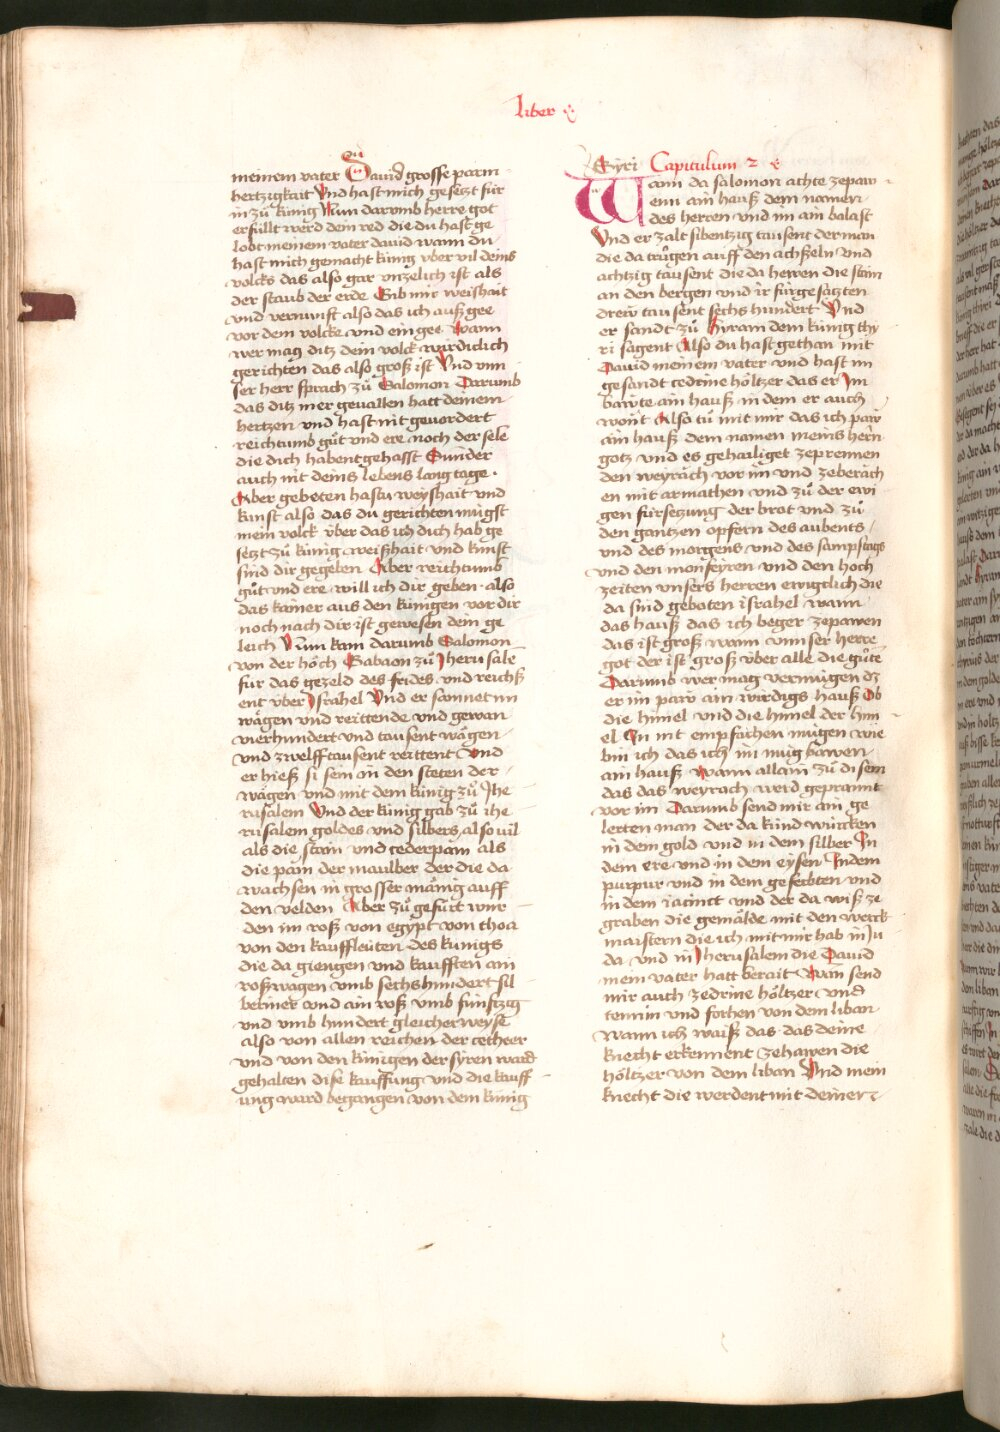 Liber
meinem vater Dauid grosse parm
hertzigkait Vnd hast mich gesetzt für
in zů künig Nun darumb herre got
erfüllt werd dein red die du hast ge
lobt meinem vater dauid wann du
hast mich gemacht künig vber vil deins
volcks das also gar vnzelich ist als
der staub der erde Gib mir weishait
vnd vernunft also das ich auß gee
vor dem volcke vnd ein gee Wann
wer mag ditz dein volck wirdiclich
gerichten das also groß ist Vnd vnn
ser herr sprach zů Salomon Darumb
das ditz mer geuallen hatt deinem
hertzen vnd hast nit geuordert
reichtumb gůt vnd ere noch der sele
die dich habent gehasst Sunder
auch nit deins lebens lang tage
Aber gebeten hastu weyshait vnd
kunst also das du gerichten mügst
mein volck über das ich dich hab ge
setzt zů künig weißhait vnd kunst
sind dir gegeben Aber reichtumb
gůt vnd ere will ich dir geben also
das kainer aus den künigen vor dir
noch nach dir ist gewesen dein ge
leich Nun kam darumb Salomon
von der höch Gabaon zů Jherusale
für das gezeld des frides vnd reichß
ent vber Jsrahel Vnd er samnet im
wägen vnd reittende vnd gewan
vierhundert vnd tausent wägen
vnd zwelfftausent reittent Vnd
er hieß si sein in den steten der
wägen vnd mit dem künig zů Jhe
rusalem Vnd der künig gab zů ihe
rusalem goldes vnd silbers also vil
als die stain vnd cederpäm als
die päm der maulber der die da
wachsen in grosser mänig auff
den velden Aber zů gefürt wur
den im roß von egypt von thoa
von den kauffleüten des künigs
die da giengen vnd kaufften ain
roßwagen vmb sechshundert sil
berner vnd ain roß vmb fünfzig
vnd vmb hundert gleicher weyse
also von allen reichen der cetheer
vnd von den künigen der syren ward
gehalten dise kauffung vnd die kauff
ung ward begangen von dem künig
Syri Capitulum 2
Wann da salomon achte zepaw
enn ain hauß dem namen
des herren vnd im ain balast
Vnd er zalt sibentzig tausent der man
die da trůgen auff den achseln vnd
achtzig tausent die da herren die stain
an den bergen vnd ir fürgesätzten
drew tausent sechs hundert Vnd
er sandt zů Hyram dem künig thy
ri sagent Also du hast gethan mit
Dauid meinem vater vnd hast im
gesandt cedrine höltzer das er Jm
bawte ain hauß in dem er auch
wont Also tů mit mir das ich paw
ain hauß dem namen meins hern
gotz vnd es gehailiget zeprennen
den weyrach vor im vnd zeberäch
en mit armathen vnd zů der ewi
gen fürsetzung der brot vnd zů
den gantzen opfern des aubents
vnd des morgens vnd des sampstags
vnd den monfeyren vnd den hoch
zeiten vnsers herren ewigclich die
da sind geboten israhel wann
das hauß das ich beger zepawen
das ist groß wann vnnser herre
got der ist groß über alle die gůte
Darumb wer mag vermügen dz
er im paw ain wirdigs hauß Ob
die himel vnd die himel der him
el Jn nit empfachen mügen wie
bin ich das ich im müg bawen
ain hauß Wann allain zů disem
das das weyrach werd geprannt
vor im Darumb send mir ain ge
lerten man der da künd würcken
in dem gold vnd in dem silber Jn
dem ere vnd in dem eysen Jndem
purpur vnd in dem geferbten vnd
in dem iacinct vnd der da wiß ze
graben die gemälde mit den werck
maistern die ich mit mir hab in Ju
da vnd in Jherusalem die Dauid
mein vater hatt berait Wan send
mir auch zedrine höltzer vnd
tennin vnd forhen von dem liban
Wann ich waiß das das deine
knecht erkennent zehawen die
höltzer von dem liban Vnd mein
knecht die werdent mit deinen